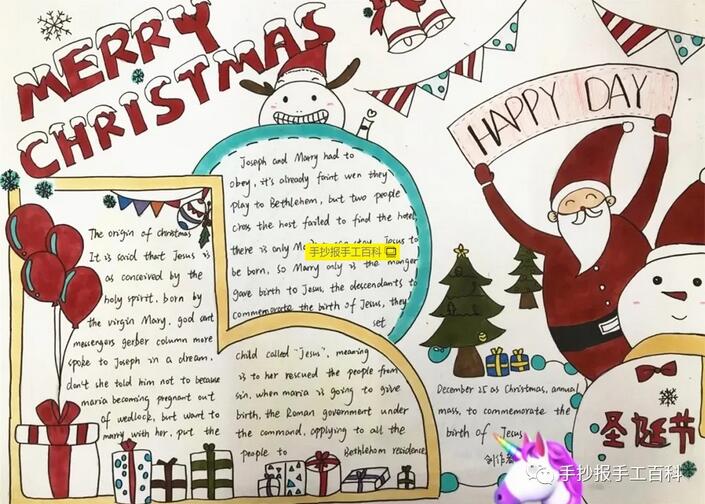 MERRY
CHRISTMAS
HAPPY DAY
The origin of christmas
It is said that Jesus is
as conceived by the
holy spirit. born by
the virgin Mary, god ant
messengers gerber column more
spoke to Joseph in a dream.
don't she told him not to because
maria becoming pregnant out
of wedlock, but want to
marry with her, put the
Joseph and Marry had to
obey, it's already faint wen they
play to Bethlehem, but two people
cross the host failed to find the hotel,
there is only stay. Jesus to
be born, so Marry only is the manger
gave birth to Jesus, the descendants to
commemorate the birth of Jesus, they
set
child called "Jesus", meaning
is to her rescued the people from
sin, when maria is going to give
birth, the Roman government under
the command, applying to all the
people to Bethlehem residence
December 25 as Christmas, annual
mass, to commemorate the
birth of Jesus
圣诞节
手抄报手工百科
手抄报手工百科